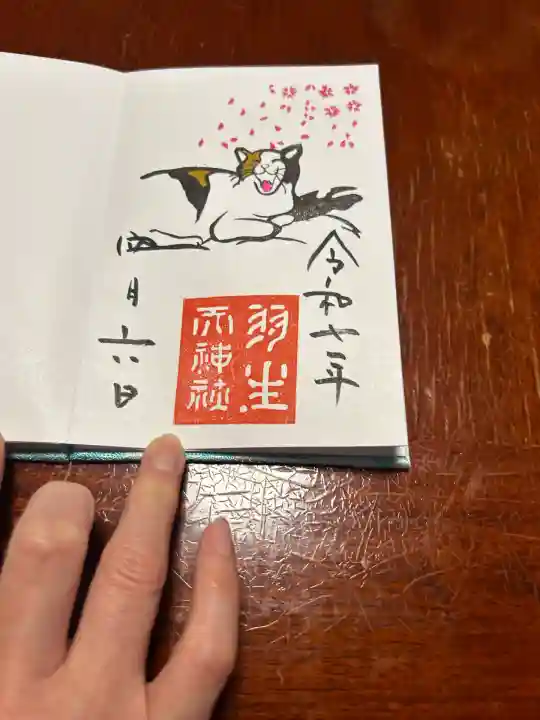 令和七年
羽生
天神社
四月六日